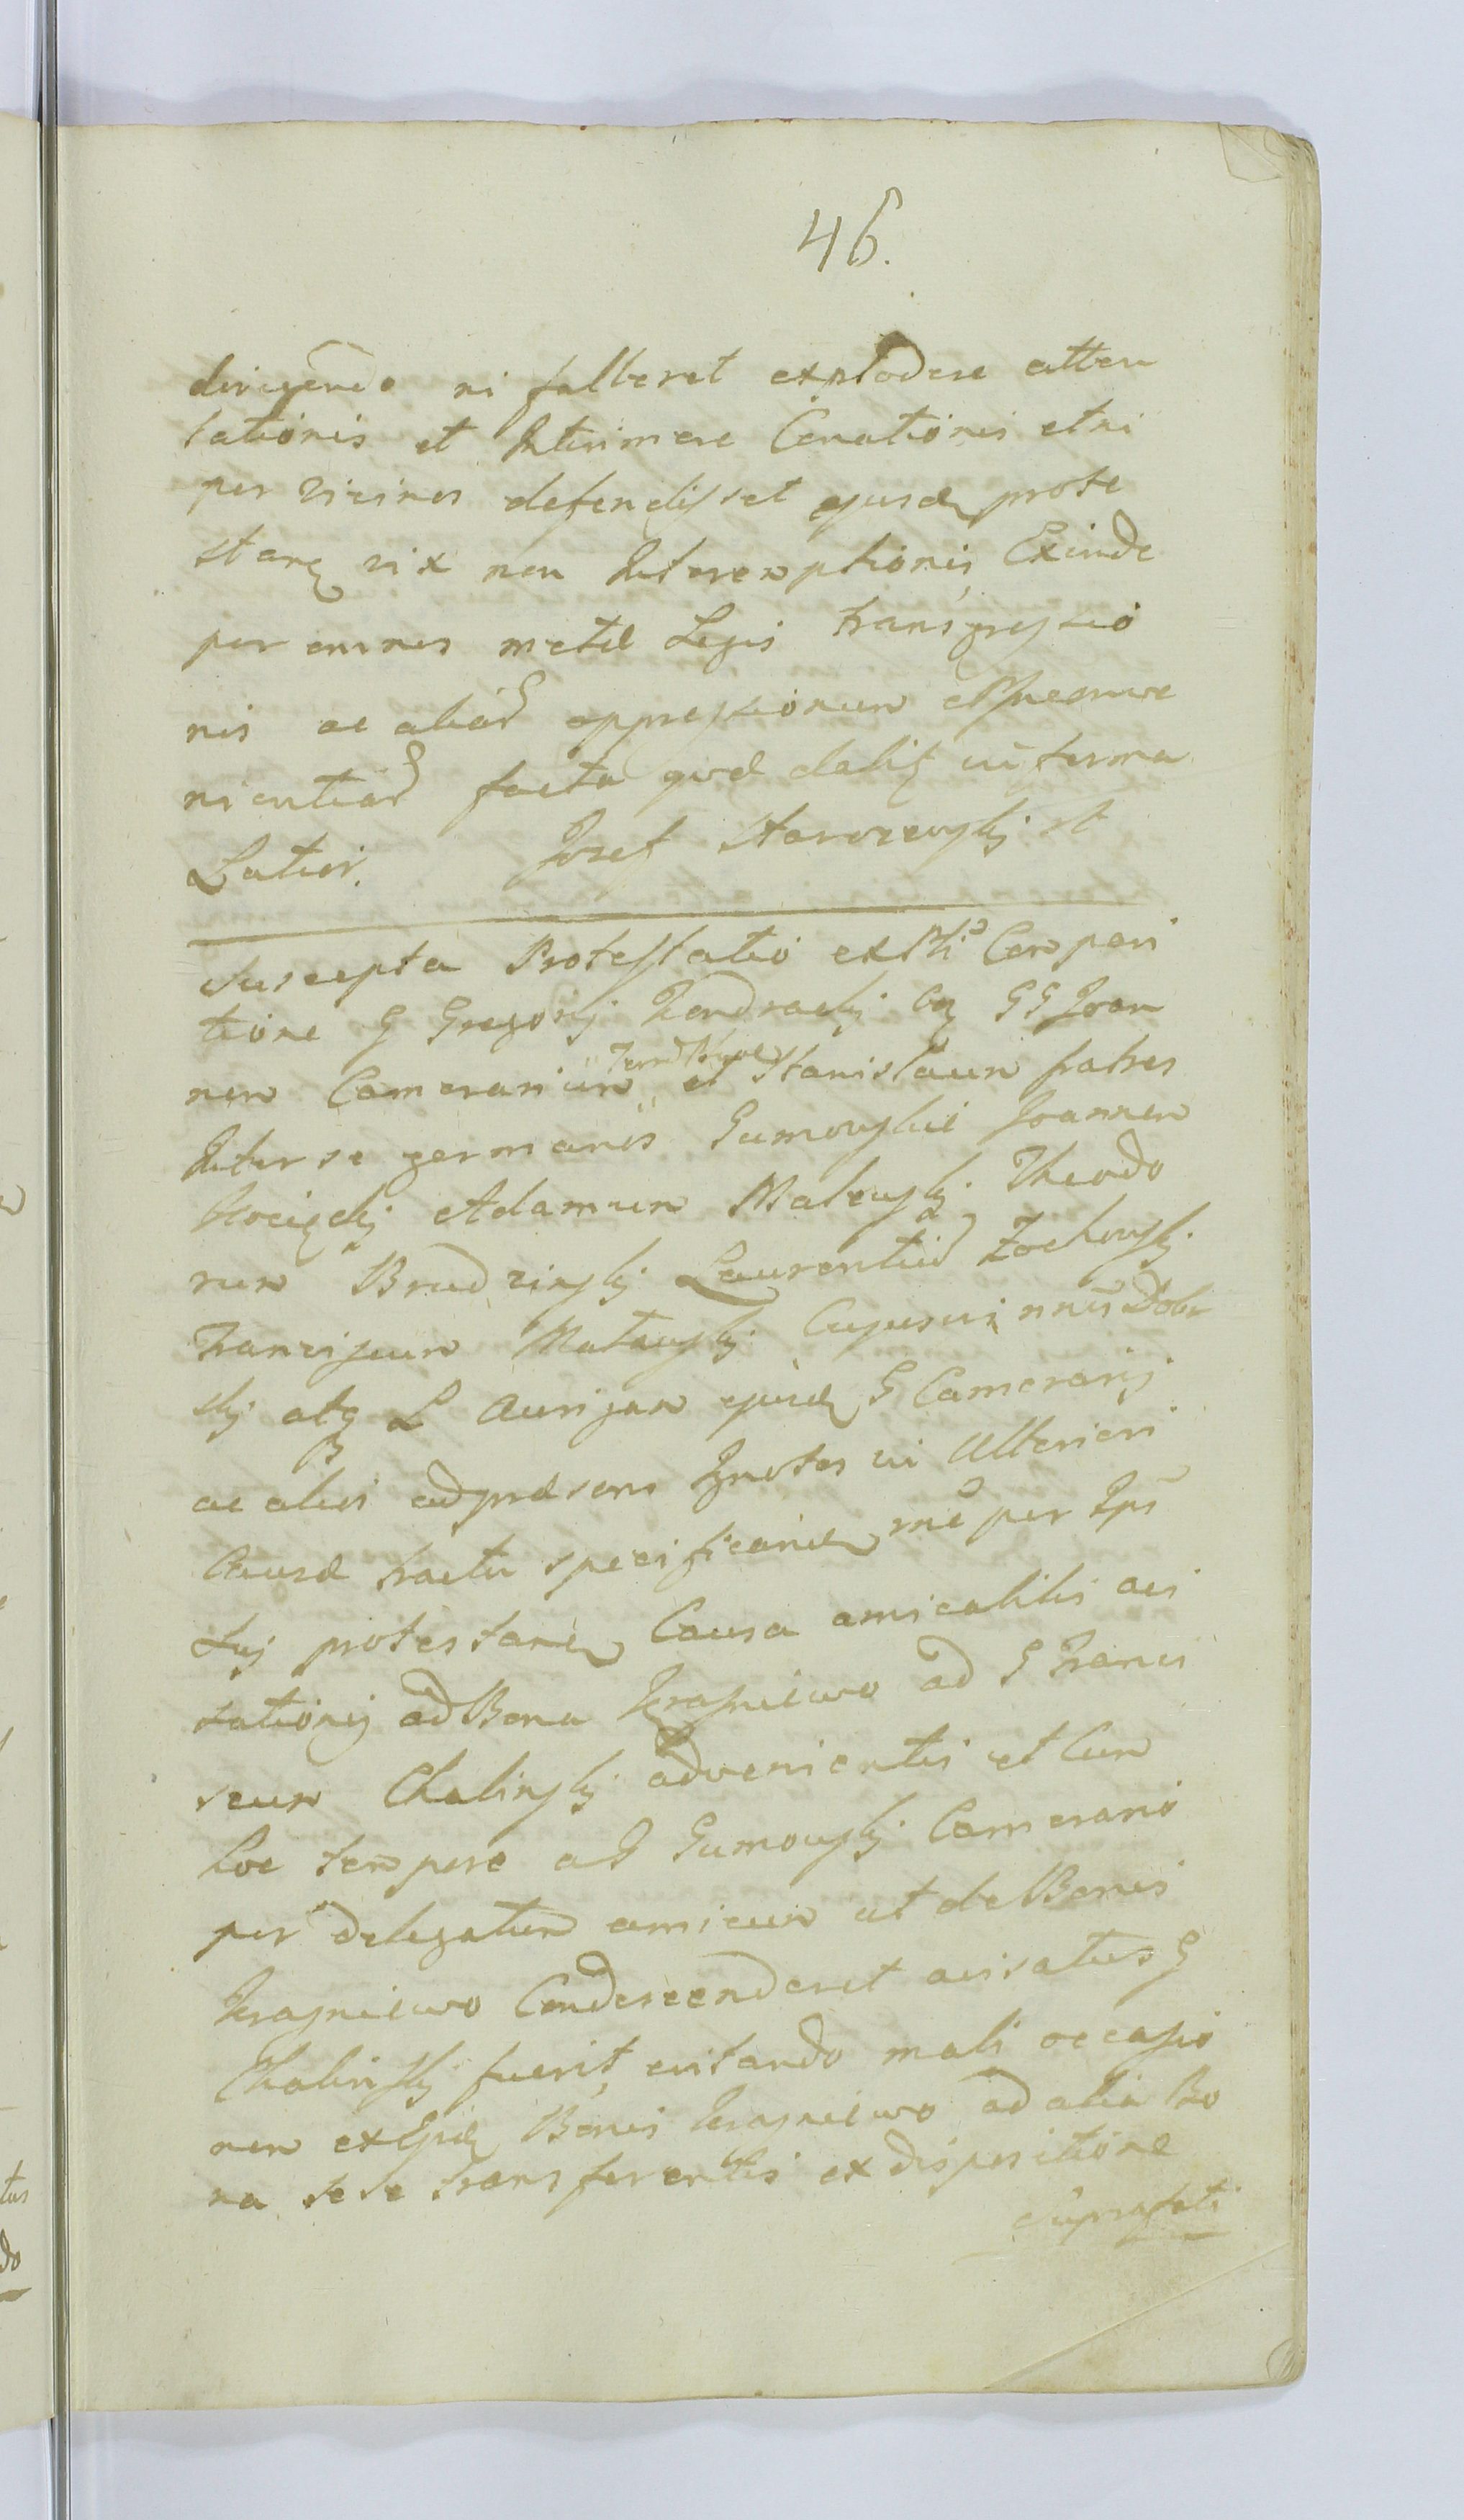 46.
dirigendo ni falleret explodere atten
tationis et Interimere Conationis et ni
per vicinos defendisset ejusd protes
stans vix non Interemptionis Exinde
per omnes metas Legis transgressio
nis ac aliar oppressionum et Inconve
nientiar facta quod dabit in forma
Latiori. Jozef Starorzewski
Suscepta Protestatio ex Pti Compari
tione G Gregorij Kendracki Coa GG Joan
nem Camerarium et Stanislaum fratres
Inter se germanos Gumowskie Joannem
Adamum Malewski Theodo
rum Brudzinski Laurentium Zochowski
Franciscum Matowski Cujusvis nnis Dobr
ski atq L Aurigam ejusd G Camerarij
ac alios ad praesens Ignotos in Ulteriori
Causae tractu specificand rne per Ipsi
Suj protestans Causa amicabilis avi
sationis ad Bona Krasniewo ad G Franci
scum Chalinski advenientis et Cum
hoc tempore a G Gumowski Camerario
per delegatum amicum ut de Bonis
Krasniewo Condescenderet avisatus G
Chalinski fuerit, evitando mali occasio
nem ex Ejusd Bonis Krasniewo ad alia Bo
na sese transferentis ex dispositione
Suprafati